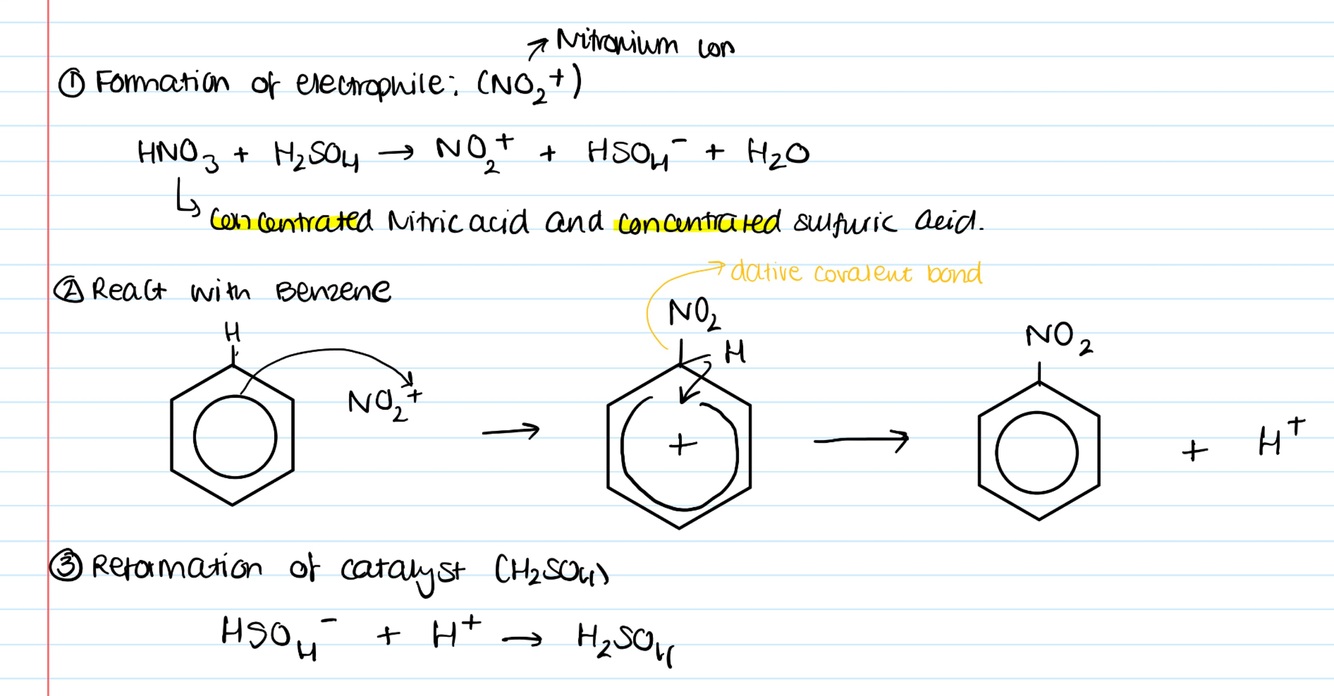 Nitronium ion
① Formation of electrophile: (NO₂⁺)
HNO₃ + H₂SO₄ → NO₂⁺ + HSO₄⁻ + H₂O
↳ concentrated Nitric acid and concentrated sulfuric acid.
→ dative covalent bond
② React with Benzene
H NO₂⁺ → NO₂ H + → NO₂ + H⁺
③ Reformation of catalyst (H₂SO₄)
HSO₄⁻ + H⁺ → H₂SO₄